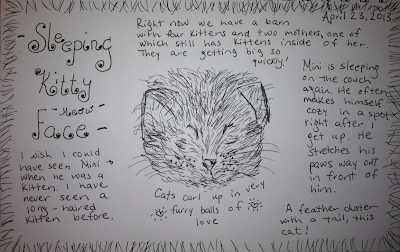 April 23, 2013
- Sleeping
Kitty
- meow -
Face -
Right now we have a barn
with four kittens and two mothers, one of
which still has kittens inside of her.
They are getting big so
quickly!
Mini is sleeping
on the couch
again. He often
makes himself
cozy in a spot
right after I
get up. He
stretches his
paws way out
in front of
him.
I wish I could
have seen Mini
when he was a
kitten. I have
never seen a
long-haired
kitten before.
Cats curl up in very
furry balls of
love
A feather duster
with a tail, this
cat!